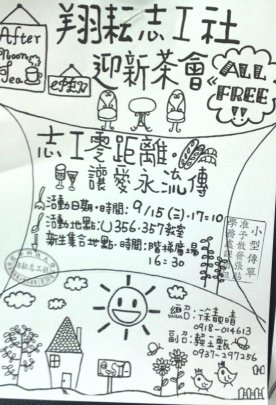 After
Noon
Tea
翔耘志工社
迎新茶會
ALL
FREE!
志工零距離
讓愛永流傳
活動日期・時間: 9/15(三)・17:10
活動地點: 356.357教室
新生集合地點・時間: 階梯廣場
16:30
小型傳單
准予散發張貼
總召: 徐
0918-014613
副召: 賴
0937-297256